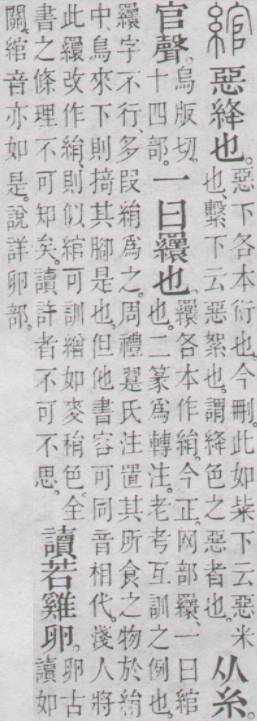 綰 惡絳也。惡下各本衍也。今刪。此如粊下云惡米也。繫下云惡絮也。謂絳色之惡者也。从糸。
官聲。烏版切。十四部。一曰𦌾也。𦌾各本作絹。今正。网部𦌾、一曰綰也。二篆爲轉注。老考互訓之例也。
𦌾字不行、多叚絹爲之。周禮翨氏注置其所食之物於絹中、鳥來下則掎其腳是也。但他書容可同音相代。淺人將
此𦌾改作絹、則似綰可訓繒如麥䅌色。全書之條理不可知矣。讀許者不可不思。讀若雞卵。卵古讀如
關。綰音亦如是。說詳卵部。